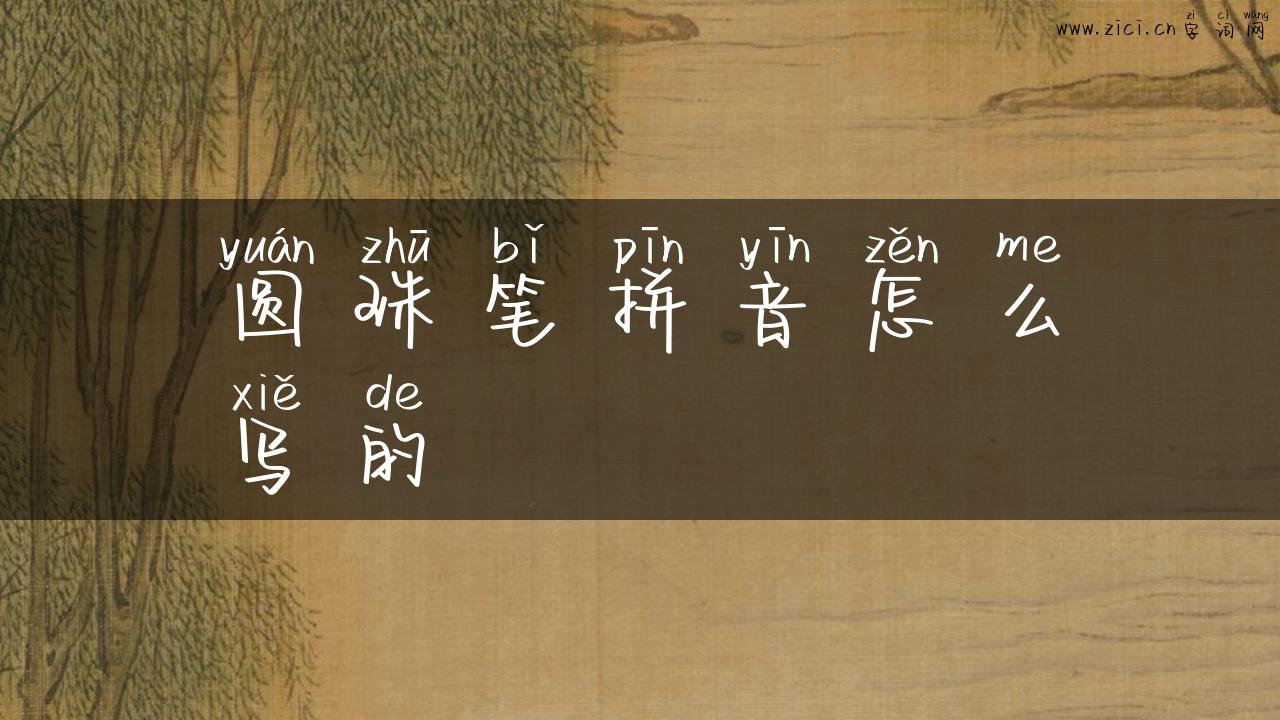 zì cí wǎng
www.zici.cn 字词网
yuán zhū bǐ pīn yīn zěn me
圆珠笔拼音怎么
xiě de
写的